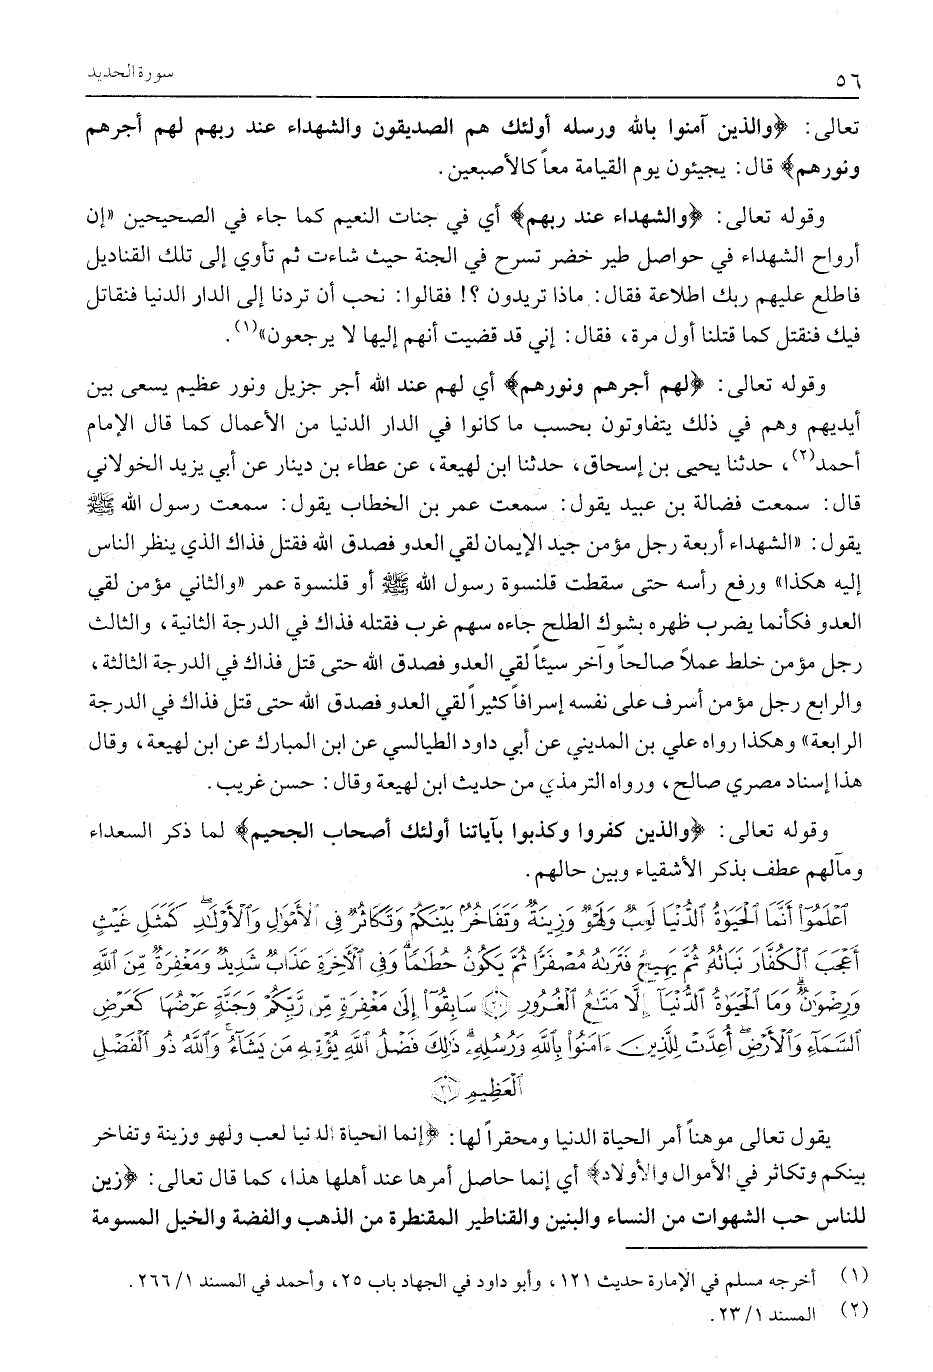 ٥٦
سورة الحديد
تعالى: ﴿والذين آمنوا بالله ورسله أولئك هم الصديقون والشهداء عند ربهم لهم أجرهم
ونورهم﴾ قال: يجيئون يوم القيامة معاً كالأصبعين.
وقوله تعالى: ﴿والشهداء عند ربهم﴾ أي في جنات النعيم كما جاء في الصحيحين «إن
أرواح الشهداء في حواصل طير خضر تسرح في الجنة حيث شاءت ثم تأوي إلى تلك القناديل
فاطلع عليهم ربك اطلاعة فقال: ماذا تريدون ؟! فقالوا: نحب أن تردنا إلى الدار الدنيا فنقاتل
فيك فنقتل كما قتلنا أول مرة، فقال: إني قد قضيت أنهم إليها لا يرجعون»(١).
وقوله تعالى: ﴿لهم أجرهم ونورهم﴾ أي لهم عند الله أجر جزيل ونور عظيم يسعى بين
أيديهم وهم في ذلك يتفاوتون بحسب ما كانوا في الدار الدنيا من الأعمال كما قال الإمام
أحمد(٢)، حدثنا يحيى بن إسحاق، حدثنا ابن لهيعة، عن عطاء بن دينار عن أبي يزيد الخولاني
قال: سمعت فضالة بن عبيد يقول: سمعت عمر بن الخطاب يقول: سمعت رسول الله ﷺ
يقول: «الشهداء أربعة رجل مؤمن جيد الإيمان لقي العدو فصدق الله فقتل فذاك الذي ينظر الناس
إليه هكذا» ورفع رأسه حتى سقطت قلنسوة رسول الله ﷺ أو قلنسوة عمر «والثاني مؤمن لقي
العدو فكأنما يضرب ظهره بشوك الطلح جاءه سهم غرب فقتله فذاك في الدرجة الثانية، والثالث
رجل مؤمن خلط عملاً صالحاً وآخر سيئاً لقي العدو فصدق الله حتى قتل فذاك في الدرجة الثالثة،
والرابع رجل مؤمن أسرف على نفسه إسرافاً كثيراً لقي العدو فصدق الله حتى قتل فذاك في الدرجة
الرابعة» وهكذا رواه علي بن المديني عن أبي داود الطيالسي عن ابن المبارك عن ابن لهيعة، وقال
هذا إسناد مصري صالح، ورواه الترمذي من حديث ابن لهيعة وقال: حسن غريب.
وقوله تعالى: ﴿والذين كفروا وكذبوا بآياتنا أولئك أصحاب الجحيم﴾ لما ذكر السعداء
ومآلهم عطف بذكر الأشقياء وبين حالهم.
ٱعْلَمُوٓا۟ أَنَّمَا ٱلْحَيَوٰةُ ٱلدُّنْيَا لَعِبٌ وَلَهْوٌ وَزِينَةٌ وَتَفَاخُرٌۢ بَيْنَكُمْ وَتَكَاثُرٌ فِى ٱلْأَمْوَٰلِ وَٱلْأَوْلَٰدِ ۖ كَمَثَلِ غَيْثٍ
أَعْجَبَ ٱلْكُفَّارَ نَبَاتُهُۥ ثُمَّ يَهِيجُ فَتَرَىٰهُ مُصْفَرًّا ثُمَّ يَكُونُ حُطَٰمًا ۖ وَفِى ٱلْءَاخِرَةِ عَذَابٌ شَدِيدٌ وَمَغْفِرَةٌ مِّنَ ٱللَّهِ
وَرِضْوَٰنٌ ۚ وَمَا ٱلْحَيَوٰةُ ٱلدُّنْيَآ إِلَّا مَتَٰعُ ٱلْغُرُورِ ۝٢٠ سَابِقُوٓا۟ إِلَىٰ مَغْفِرَةٍ مِّن رَّبِّكُمْ وَجَنَّةٍ عَرْضُهَا كَعَرْضِ
ٱلسَّمَآءِ وَٱلْأَرْضِ أُعِدَّتْ لِلَّذِينَ ءَامَنُوا۟ بِٱللَّهِ وَرُسُلِهِۦ ۚ ذَٰلِكَ فَضْلُ ٱللَّهِ يُؤْتِيهِ مَن يَشَآءُ ۚ وَٱللَّهُ ذُو ٱلْفَضْلِ
ٱلْعَظِيمِ ۝٢١
يقول تعالى موهناً أمر الحياة الدنيا ومحقراً لها: ﴿إنما الحياة الدنيا لعب ولهو وزينة وتفاخر
بينكم وتكاثر في الأموال والأولاد﴾ أي إنما حاصل أمرها عند أهلها هذا، كما قال تعالى: ﴿زين
للناس حب الشهوات من النساء والبنين والقناطير المقنطرة من الذهب والفضة والخيل المسومة
(١) أخرجه مسلم في الإمارة حديث ١٢١، وأبو داود في الجهاد باب ٢٥، وأحمد في المسند ٢٦٦/١.
(٢) المسند ٢٣/١.